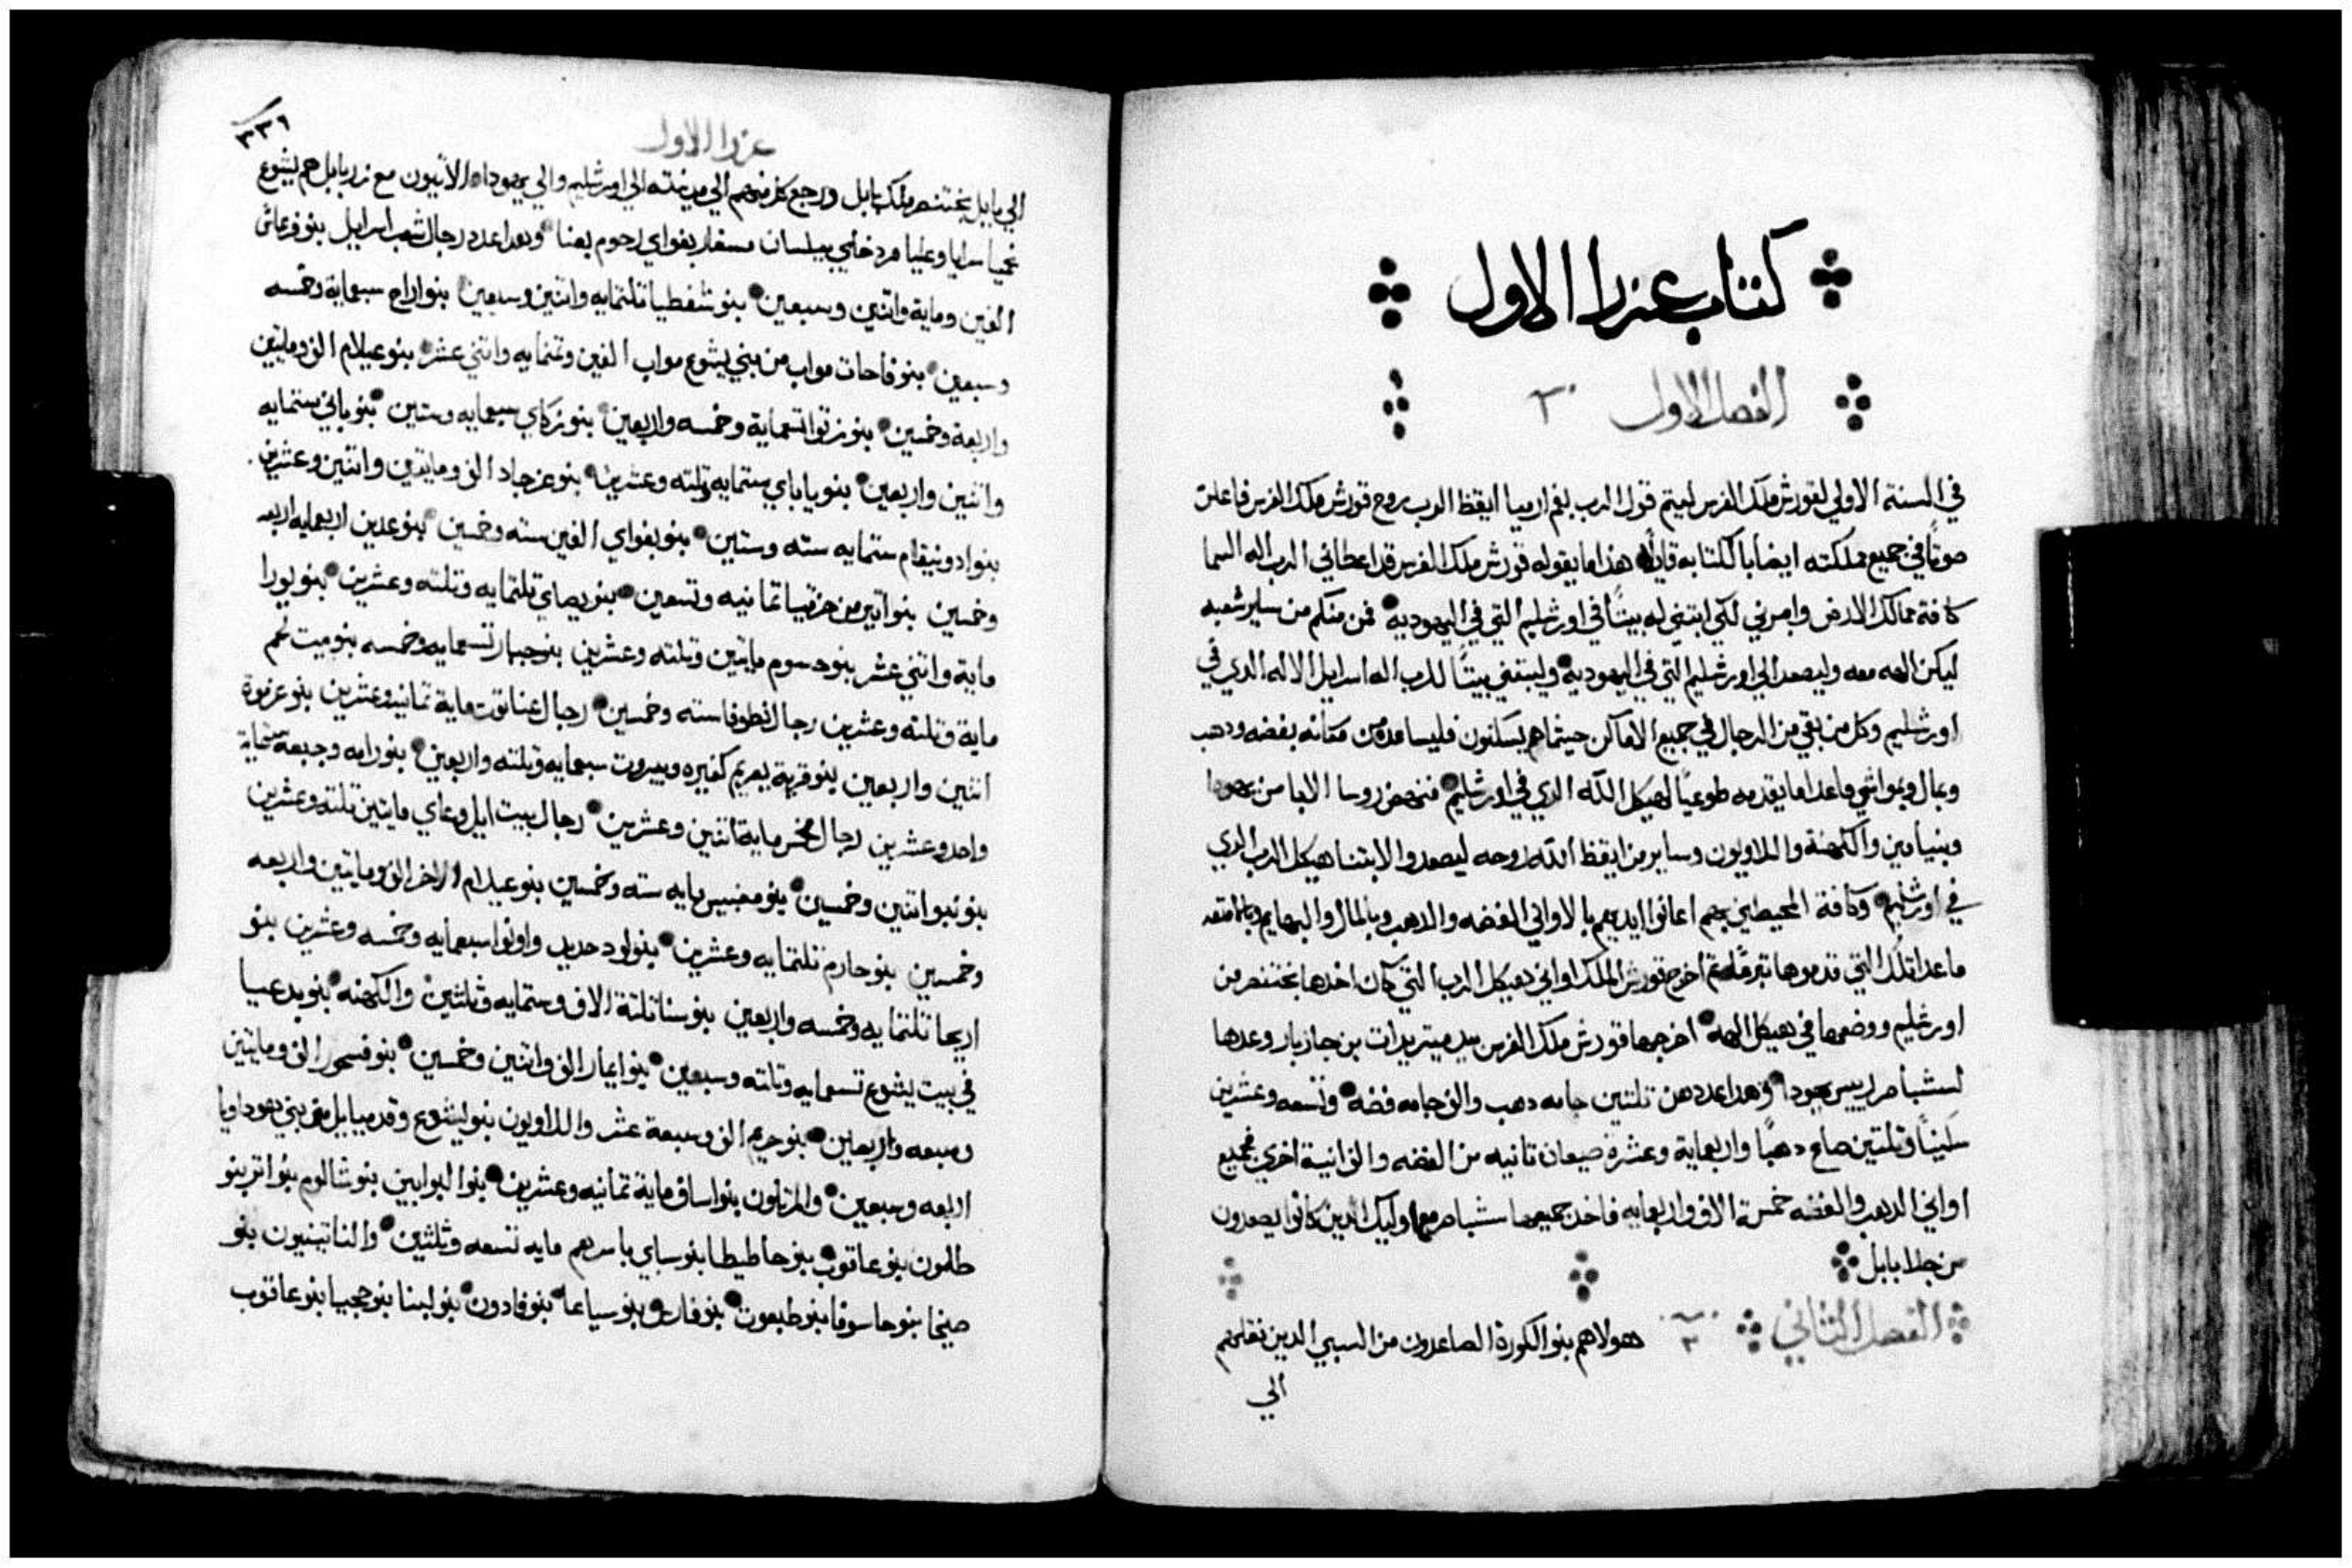 كتاب عزرا الاول
الفصل الاول
في السنة الاولي لقورش ملك الفرس ليتم قول الرب بفم ارميا ايقظ الرب روح قورش ملك الفرس فاعلن
صوتًا في جميع مملكته ايضا بالكتابه قايلًا هذا ما يقوله قورش ملك الفرس قد اعطاني الرب اله السما
كافة ممالك الارض وامرني لكي ابتني له بيتًا في اورشليم التي في اليهودية فمن منكم من ساير شعبه
ليكن الهه معه وليصعد الي اورشليم التي في اليهودية وليبتني بيتًا للرب اله اسرايل الاله الدي في
اورشليم وكل من بقي من الرجال في جميع الاماكن حيثما هم يسكنون فليساعدوه من مكانه بفضه ودهب
وبمال وبمواشي ماعدا ما يقدمه طوعيًا لهيكل الله الدي في اورشليم فنهض روسا الابا من يهودا
وبنيامين والكهنة واللاويون وساير من ايقظ الله روحه ليصعدوا لابتنا هيكل الرب الدي
في اورشليم وكافة المحيطين بهم اعانوا ايديهم بالاواني الفضه والدهب وبالمال والبهايم وبالامتعه
ماعدا تلك التي قدموها تبرعًا ثم اخرج قورش الملك اواني هيكل الرب التي كان اخدها بختنصر من
اورشليم ووضعها في هيكل الهه اخرجها قورش ملك الفرس بيد ميتريدات بن جازبار وعدها
لسشباصر رييس يهودا وهدا عددهن تلتين جامه دهب والف جامه فضه وتسعه وعشرين
سكينًا وتلتين صاع دهبًا واربعماية وعشرة صيعان تانيه من الفضه والف انية اخري فجميع
اواني الدهب والفضه خمسة الاف واربعمايه فاخد جميعها سشباصر مع اوليك الدين كانوا يصعدون
من جلا بابل
الفصل الثاني ٢ هولا هم بنو الكورة الصاعدون من السبي الدين نقلهم
الي
عزرا الاول
٣٣٦
الي بابل بختنصر ملك بابل ورجع كل منهم الي مدينته الي اورشليم والي يهودا الاتيون مع زربابل هم يشوع
نحميا سرايا وعليا مردخاي بيلسان مسفار بغواي رحوم بعنا وهدا عدد رجال شعب اسرايل بنو فرعاش
الفين ومايه واتنين وسبعين بنو شفطيا تلتمايه واتنين وسبعين بنو اراح سبعماية وخمسه
وسبعين بنو فاحات مواب من بني يشوع مواب الفين وتمنمايه واتني عشر بنو عيلام الف ومايتين
واربعة وخمسين بنو زتوا تسعماية وخمسه واربعين بنو زكاي سبعمايه وستين بنو باني ستمايه
واتنين واربعين بنو باباي ستمايه وتلته وعشرين بنو عزجاد الف ومايتين واتنين وعشرين
بنو ادونيقام ستمايه سته وستين بنو بغواي الفين سته وخمسين بنو عدين اربعمايه اربعه
وخمسين بنو اتير من حزقيا تمانيه وتسعين بنو بصاي تلتمايه وتلته وعشرين بنو يورا
ماية واتني عشر بنو حسوم مايتين وتلته وعشرين بنو جبار تسعمايه وخمسه بنو بيت لحم
ماية وتلته وعشرين رجال نطوفا سته وخمسين رجال عناتوت ماية تمانيه وعشرين بنو عزموة
اتنين واربعين بنو قرية يعريم كفيره وبيروت سبعمايه وتلته واربعين بنو رامه وجبعه ستماية
واحد وعشرين رجال مخمر ماية اتنين وعشرين رجال بيت ايل وعاي مايتين تلته وعشرين
بنو نبو اتنين وخمسين بنو مغبيس مايه سته وخمسين بنو عيلام الاخر الف ومايتين واربعه
وخمسين بنو حارم تلتمايه وعشرين بنو لود حديد واونوا سبعمايه وخمسه وعشرين بنو
اريحا تلتمايه وخمسه واربعين بنو سنا تلتة الاف وستمايه وتلتين والكهنه بنو يدعيا
في بيت يشوع تسعمايه وتلته وسبعين بنو ايمار الف واتنين وخمسين بنو فسحور الف ومايتين
وسبعه واربعين بنو حريم الف وسبعة عشر واللاويون بنو ليشوع وقدمييل من بني هوداويا
اربعه وسبعين والمرتلون بنو اساف ماية تمانيه وعشرين بنو البوابين بنو شالوم بنو اتر بنو
طلمون بنو عاقوب بنو حاطيطا بنو سباي باسرهم مايه تسعه وتلتين والناتنيون بنو
صيحا بنو حاسوفا بنو طبعوت بنو قارس بنو سياعا بنو فادون بنو لبنا بنو حجبيا بنو عاقوب